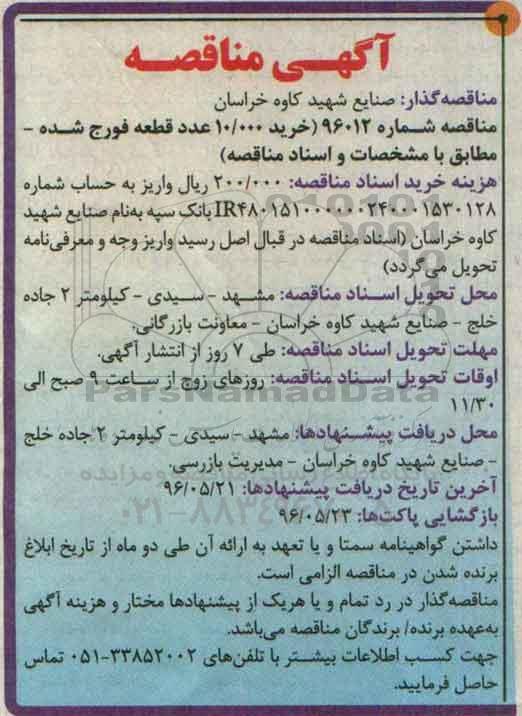 آگهی مناقصه
مناقصه‌گذار: صنایع شهید کاوه خراسان
مناقصه شماره ۹۶۰۱۲ (خرید ۱۰/۰۰۰ عدد قطعه فورج شده –
مطابق با مشخصات و اسناد مناقصه)
هزینه خرید اسناد مناقصه: ۲۰۰/۰۰۰ ریال واریز به حساب شماره
IR۴۸۰۱۵۱۰۰۰۰۰۰۲۴۰۰۰۱۵۳۰۱۲۸ بانک سپه به‌نام صنایع شهید
کاوه خراسان (اسناد مناقصه در قبال اصل رسید واریز وجه و معرفی‌نامه
تحویل می‌گردد)
محل تحویل اسناد مناقصه: مشهد – سیدی – کیلومتر ۲ جاده
خلج – صنایع شهید کاوه خراسان – معاونت بازرگانی.
مهلت تحویل اسناد مناقصه: طی ۷ روز از انتشار آگهی.
اوقات تحویل اسناد مناقصه: روزهای زوج از ساعت ۹ صبح الی
۱۱/۳۰
ParsNamadData
محل دریافت پیشنهادها: مشهد – سیدی – کیلومتر ۲ جاده خلج
– صنایع شهید کاوه خراسان – مدیریت بازرسی.
آخرین تاریخ دریافت پیشنهادها: ۹۶/۰۵/۲۱
بازگشایی پاکت‌ها: ۹۶/۰۵/۲۳
داشتن گواهینامه سمتا و یا تعهد به ارائه آن طی دو ماه از تاریخ ابلاغ
برنده شدن در مناقصه الزامی است.
مناقصه‌گذار در رد تمام و یا هریک از پیشنهادها مختار و هزینه آگهی
به‌عهده برنده/ برندگان مناقصه می‌باشد.
جهت کسب اطلاعات بیشتر با تلفن‌های ۳۳۸۵۲۰۰۲-۰۵۱ تماس
حاصل فرمایید.